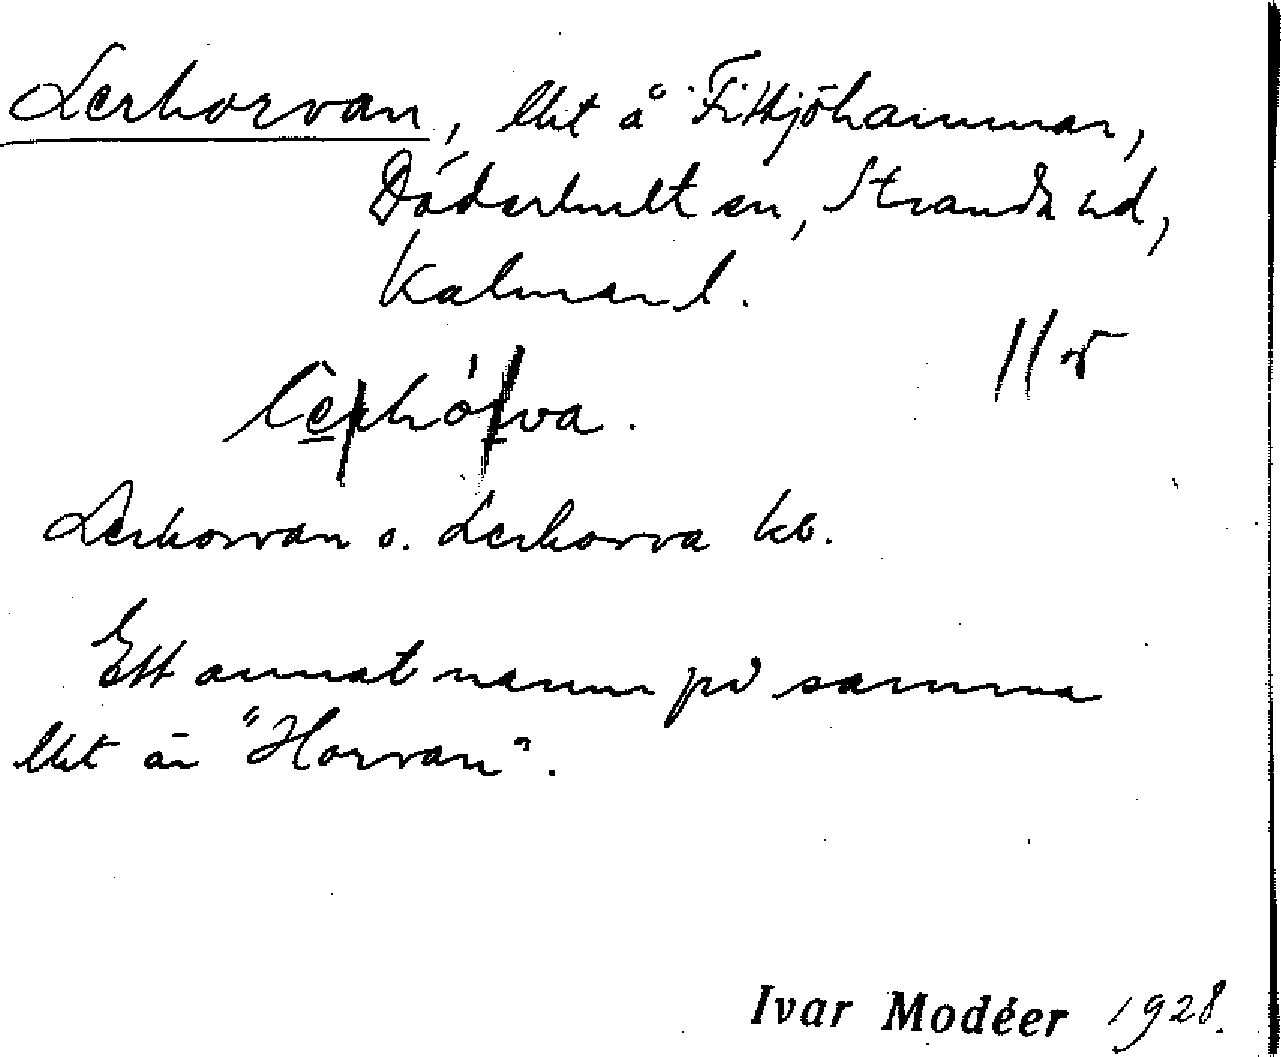 Lerhorvan, lht å Fittjöhammar,
Döderhult sn, Stranda hd,
Kalmar l.
Lerhorvan o. Lerhorva kb.
Ett annat namn på samma
lht är "Horvan".
Ivar Modéer 1928.